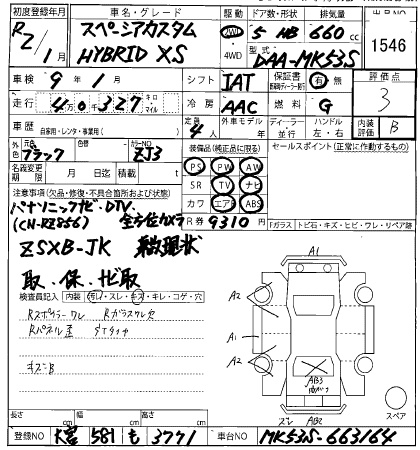 初度登録年月 車名・グレード 駆動 ドア数・形状 排気量 出品NO
R2/1 スペーシアカスタム HYBRID XS 2WD ・4WD 5 HB 660cc 1546
型式 DAA-MK53S
車検 9年1月 シフト IAT 保証書 有 無 評価点 3
走行 40327 キロ・マイル 冷房 AAC 燃料 G
車歴 自家用・レンタ・事業用( ) 定員 4人 外車モデル 年 ディーラー・並行 ハンドル 左・右 内装 B
外色 元色 ブラック 色替 カラーNO ZJ3 装備品(純正品に限る) セールスポイント(正常に作動するもの)
名義変更期限 月 日 積載 t PS PW AW
注意事項(欠品・修復・不具合箇所および状態) SR TV ナビ
パナソニックナビ・DTV. 全方位カメラ カワ エアB ABS
(CN-RZ856) R券 9310
Fガラス トビ石・キズ・ヒビ・ワレ・リペア跡
ZSXB-JK 現状
取・保・ナビ取
検査員記入 内装 汚レ・スレ・キズ・キレ・コゲ・穴
Rスポイラーワレ Rガラスワレ欠
Rパネル歪
キズ=B
A1
A2
A1
A2
AB3
ズレ AB2
スペア
長さ cm 幅 cm 高さ cm
登録NO 大宮 581 も 3771 車台NO MK53S-663164